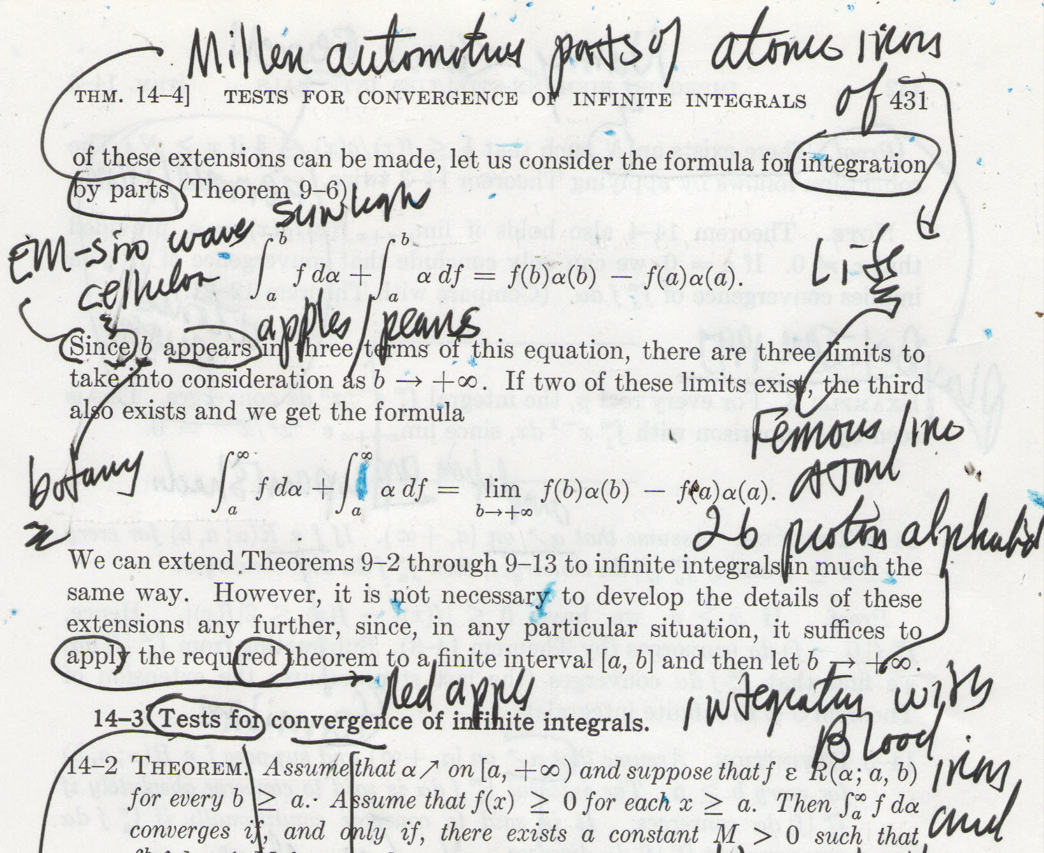 Millen automotive parts of atomic irons
of
THM. 14–4] TESTS FOR CONVERGENCE OF INFINITE INTEGRALS 431
of these extensions can be made, let us consider the formula for integration
by parts (Theorem 9–6)
sunlight
EM-sin wave
∫_a^b f dα + ∫_a^b α df = f(b)α(b) − f(a)α(a).
apples / pears
Since b appears in three terms of this equation, there are three limits to
take into consideration as b → +∞. If two of these limits exist, the third
also exists and we get the formula
Femous
atom
botany
∫_a^∞ f dα + ∫_a^∞ α df = lim_{b→+∞} f(b)α(b) − f(a)α(a).
26 proton alphabet
We can extend Theorems 9–2 through 9–13 to infinite integrals in much the
same way. However, it is not necessary to develop the details of these
extensions any further, since, in any particular situation, it suffices to
apply the required theorem to a finite interval [a, b] and then let b → +∞.
Red apple
integrality with
14–3 Tests for convergence of infinite integrals.
Blood
irons
14–2 THEOREM. Assume that α ↗ on [a, +∞) and suppose that f ε R(α; a, b)
for every b ≥ a. Assume that f(x) ≥ 0 for each x ≥ a. Then ∫_a^∞ f dα
and
converges if, and only if, there exists a constant M > 0 such that